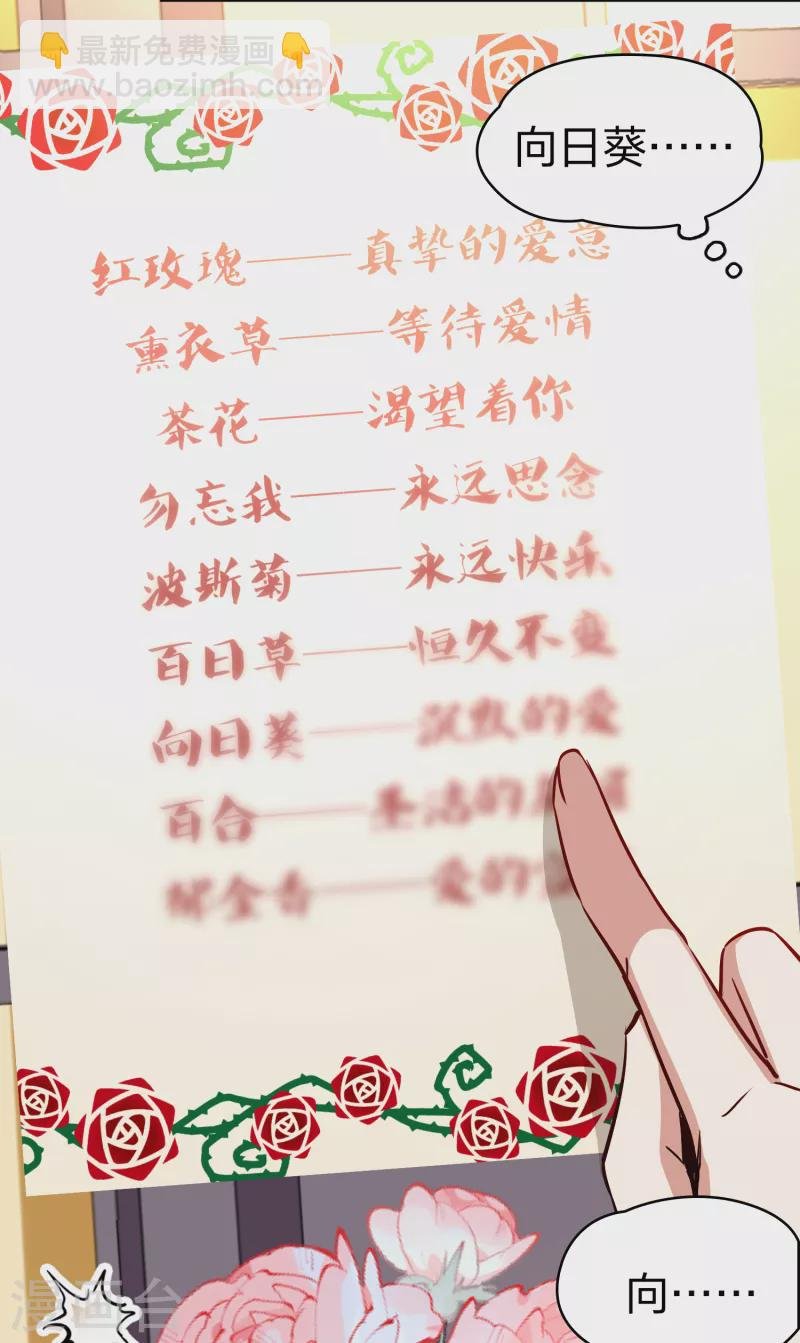 👇最新免费漫画👇
www.baozimh.com
向日葵……
红玫瑰——真挚的爱意
熏衣草——等待爱情
茶花——渴望着你
勿忘我——永远思念
波斯菊——永远快乐
百日草——恒久不变
向日葵——沉默的爱
百合——圣洁的
郁金香——爱的
向……
漫画台